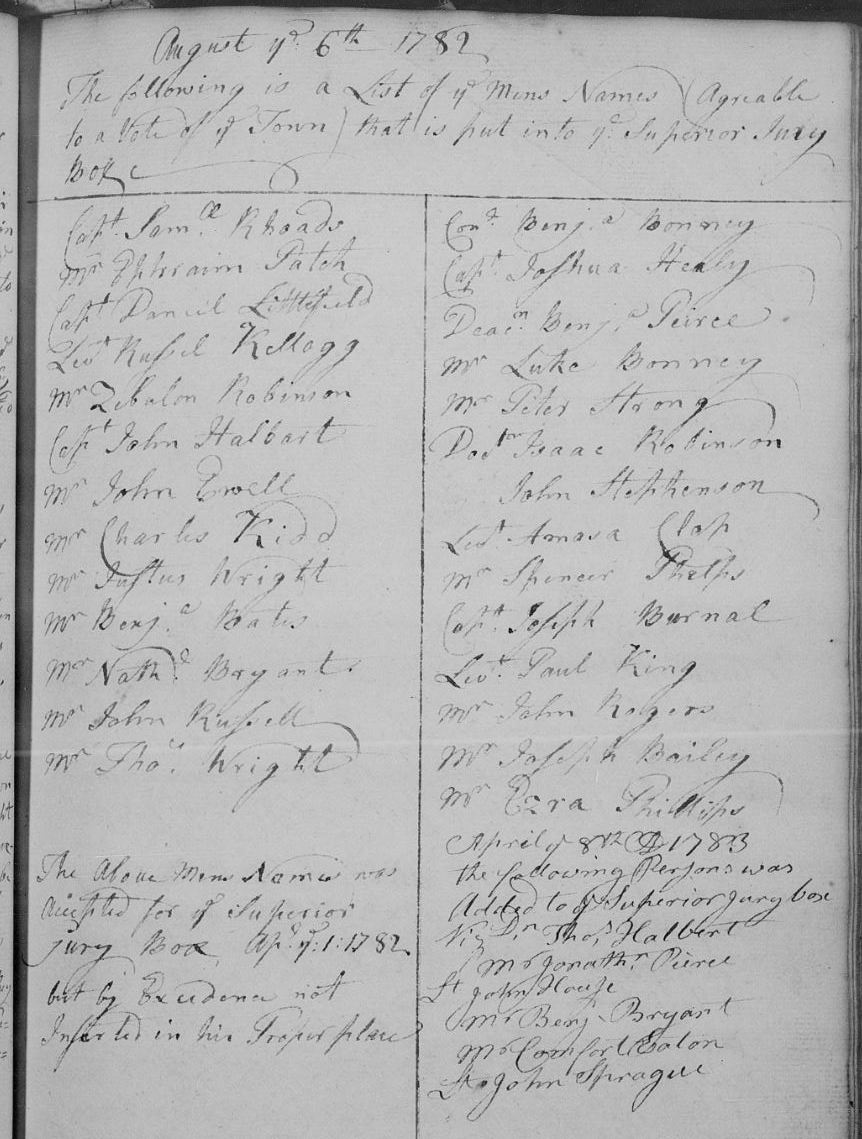 August ye 6th 1782
The following is a List of ye Mens Names (Agreable
to a Vote of ye Town) that is put into ye Superior Jury
Box
Capt Samll Rhoads
Mr Ephraim Patch
Capt Daniel Littlefield
Leut Russel Kellogg
Mr Zebulon Robinson
Capt John Halbart
Mr John Ewell
Mr Charles Kidd
Mr Justus Wright
Mr Benja Bates
Mr Nathll Bryant
Mr John Russell
Mr Thos Wright
The Above Mens Names was
Accepted for ye Superior
Jury Box Apl ye 1: 1782
but by
Inserted in his Proper place
Benja Bonney
Capt Joshua Healy
Deacn Benja Peirce
Mr Luke Bonney
Mr Peter Strong
Doctr Isaac Robinson
John Stephenson
Leut Amasa Clap
Mr Spencer Phelps
Capt Joseph Burnal
Leut Paul King
Mr John Rogers
Mr Joseph Bailey
Mr Ezra Phillips
April ye 8th AD 1783
the following Persons was
Added to ye Superior Jury box
Viz Dn Thos Halbert
Mr Jonathn Pierce
Lt John House
Mr Benj Bryant
Mr Comfort Eaton
Lt John Sprague